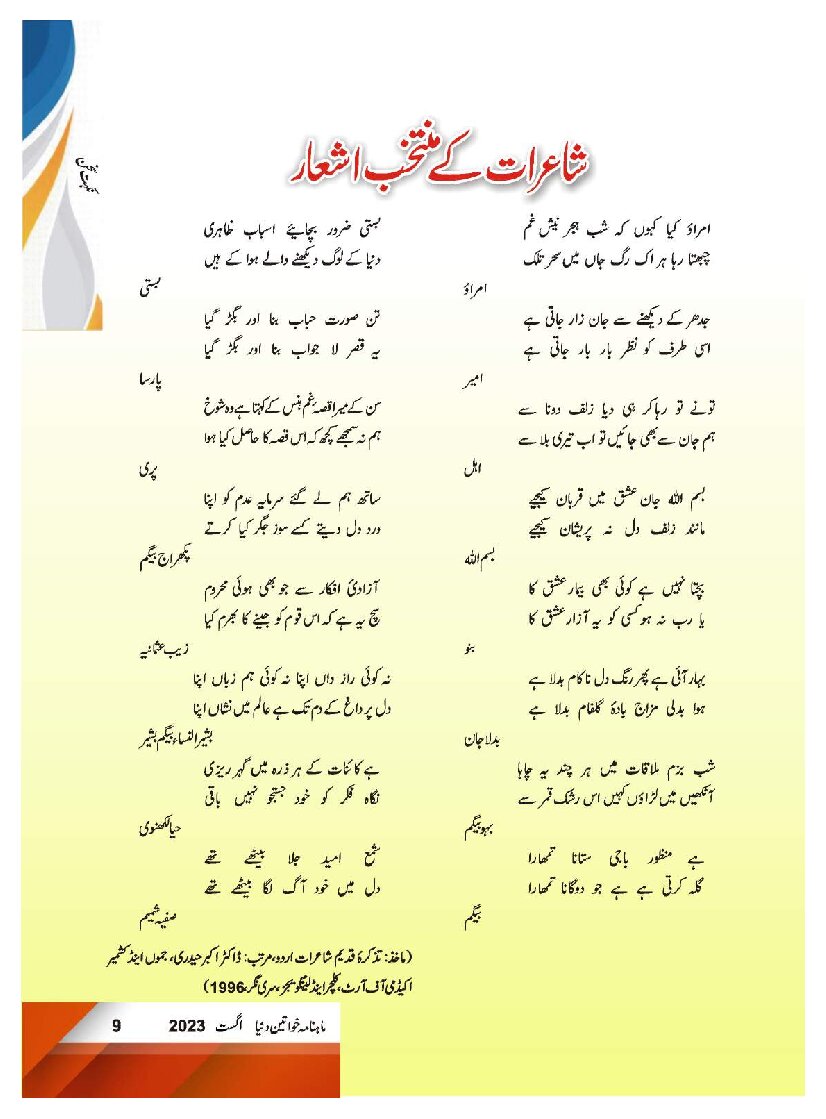 نکہت سخن
شاعرات کے منتخب اشعار
امراؤ کیا کہوں کہ شب ہجر نیش غم
چبھتا رہا ہر اک رگ جاں میں سحر تلک
امراؤ
جدھر کے دیکھنے سے جان زار جاتی ہے
اسی طرف کو نظر بار بار جاتی ہے
امیر
تونے تو رہا کر ہی دیا زلف دوتا سے
ہم جان سے بھی جائیں تو اب تیری بلا سے
اہل
بسم اللہ جان عشق میں قربان کیجیے
مانند زلف دل نہ پریشان کیجیے
بسم اللہ
بچتا نہیں ہے کوئی بھی بیمار عشق کا
یا رب نہ ہو کسی کو یہ آزار عشق کا
بنو
بہار آئی ہے پھر رنگ دل ناکام بدلا ہے
ہوا بدلی مزاج بادۂ گلفام بدلا ہے
بدلا جان
شب بزم ملاقات میں ہر چند یہ چاہا
آنکھیں میں لڑاؤں کہیں اس رشک قمر سے
بہو بیگم
ہے منظور باجی ستانا تمھارا
گلہ کرتی ہے ہے جو دوگانا تمھارا
بیگم
بستی ضرور بچایئے اسباب ظاہری
دنیا کے لوگ دیکھنے والے ہوا کے ہیں
بستی
تن صورت حباب بنا اور بگڑ گیا
یہ قصر لا جواب بنا اور بگڑ گیا
پارسا
سن کے میرا قصۂ غم ہنس کے کہتا ہے وہ شوخ
ہم نہ سمجھے کچھ کہ اس قصہ کا حاصل کیا ہوا
پری
ساتھ ہم لے گئے سرمایہ عدم کو اپنا
ورد دل دیتے کسے سوز جگر کیا کرتے
پکھراج بیگم
آزادیٔ افکار سے جو بھی ہوئی محروم
سچ یہ ہے کہ اس قوم کو جینے کا بھرم کیا
زیب عثمانیہ
نہ کوئی راز داں اپنا نہ کوئی ہم زباں اپنا
دل پر داغ کے دم تک ہے عالم میں نشاں اپنا
بشیر النساء بیگم بشیر
ہے کائنات کے ہر ذرہ میں گہر ریزی
نگاہ فکر کو خود جستجو نہیں باقی
حیا لکھنوی
شمع امید جلا بیٹھے تھے
دل میں خود آگ لگا بیٹھے تھے
صفیہ شمیم
(ماخذ: تذکرۂ قدیم شاعرات اردو، مرتب: ڈاکٹر اکبر حیدری، جموں اینڈ کشمیر
اکیڈمی آف آرٹ، کلچر اینڈ لینگویجز، سری نگر، 1996)
ماہنامہ خواتین دنیا اگست 2023 9